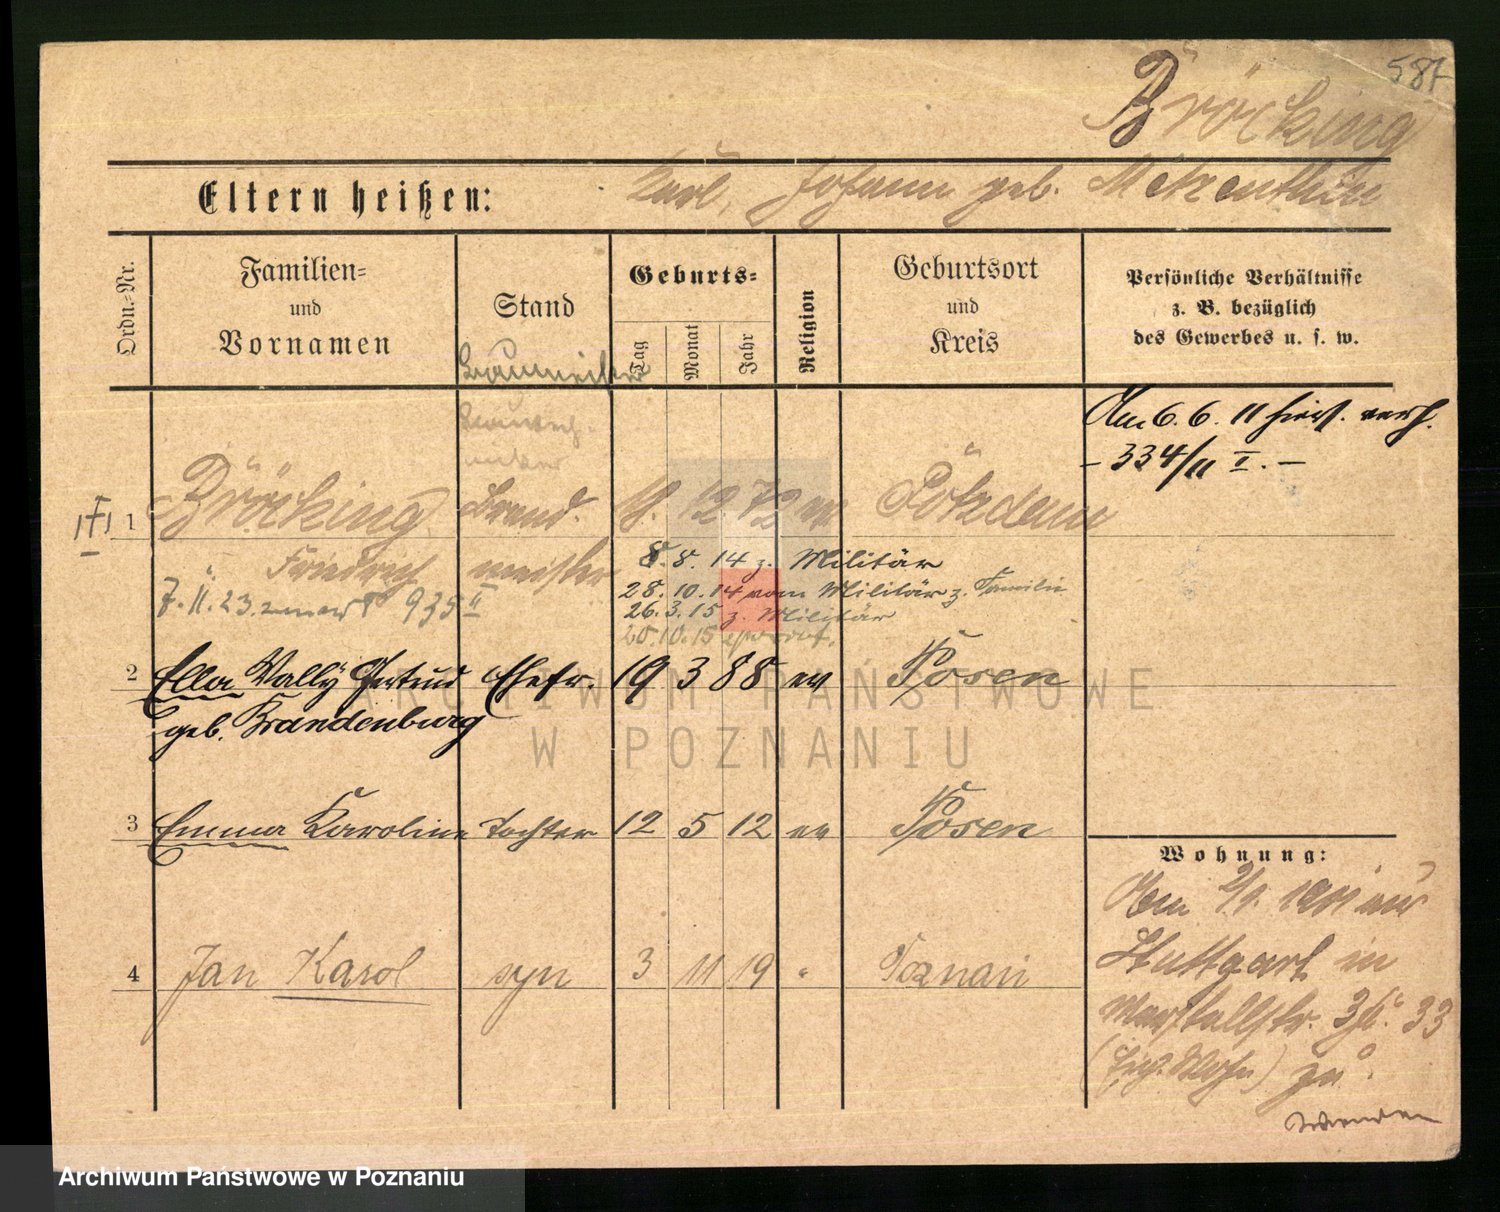 587
Bröcking
Eltern heißen: Karl, Johann geb. Metzenthin
Ordn.-Nr.
Familien-
und
Vornamen
Stand
Baumeister
Geburts-
Tag
Monat
Jahr
Religion
Geburtsort
und
Kreis
Persönliche Verhältnisse
z. B. bezüglich
des Gewerbes u. s. w.
Am 6. 6. 11 hier verh.
- 334/11 I. -
1 Bröcking Brand- 12 72 ev Potsdam
Friedrich meister
8. 8. 14 z. Militär
7. 11. 23 935 II
28. 10. 14 vom Militär z. Familie
26. 3. 15 z. Militär
20. 10. 15
2 Ella Wally Gertrud Ehefr. 19 3 88 ev Posen
geb. Brandenburg
3 Emma Karoline Tochter 12 5 12 ev Posen
4 Jan Karol syn 3 11 19 " Poznań
Wohnung:
Am 2/1. 1901 aus
Stuttgart in
Marstallstr. 33
zu
wenden
ARCHIWUM PAŃSTWOWE
W POZNANIU
Archiwum Państwowe w Poznaniu